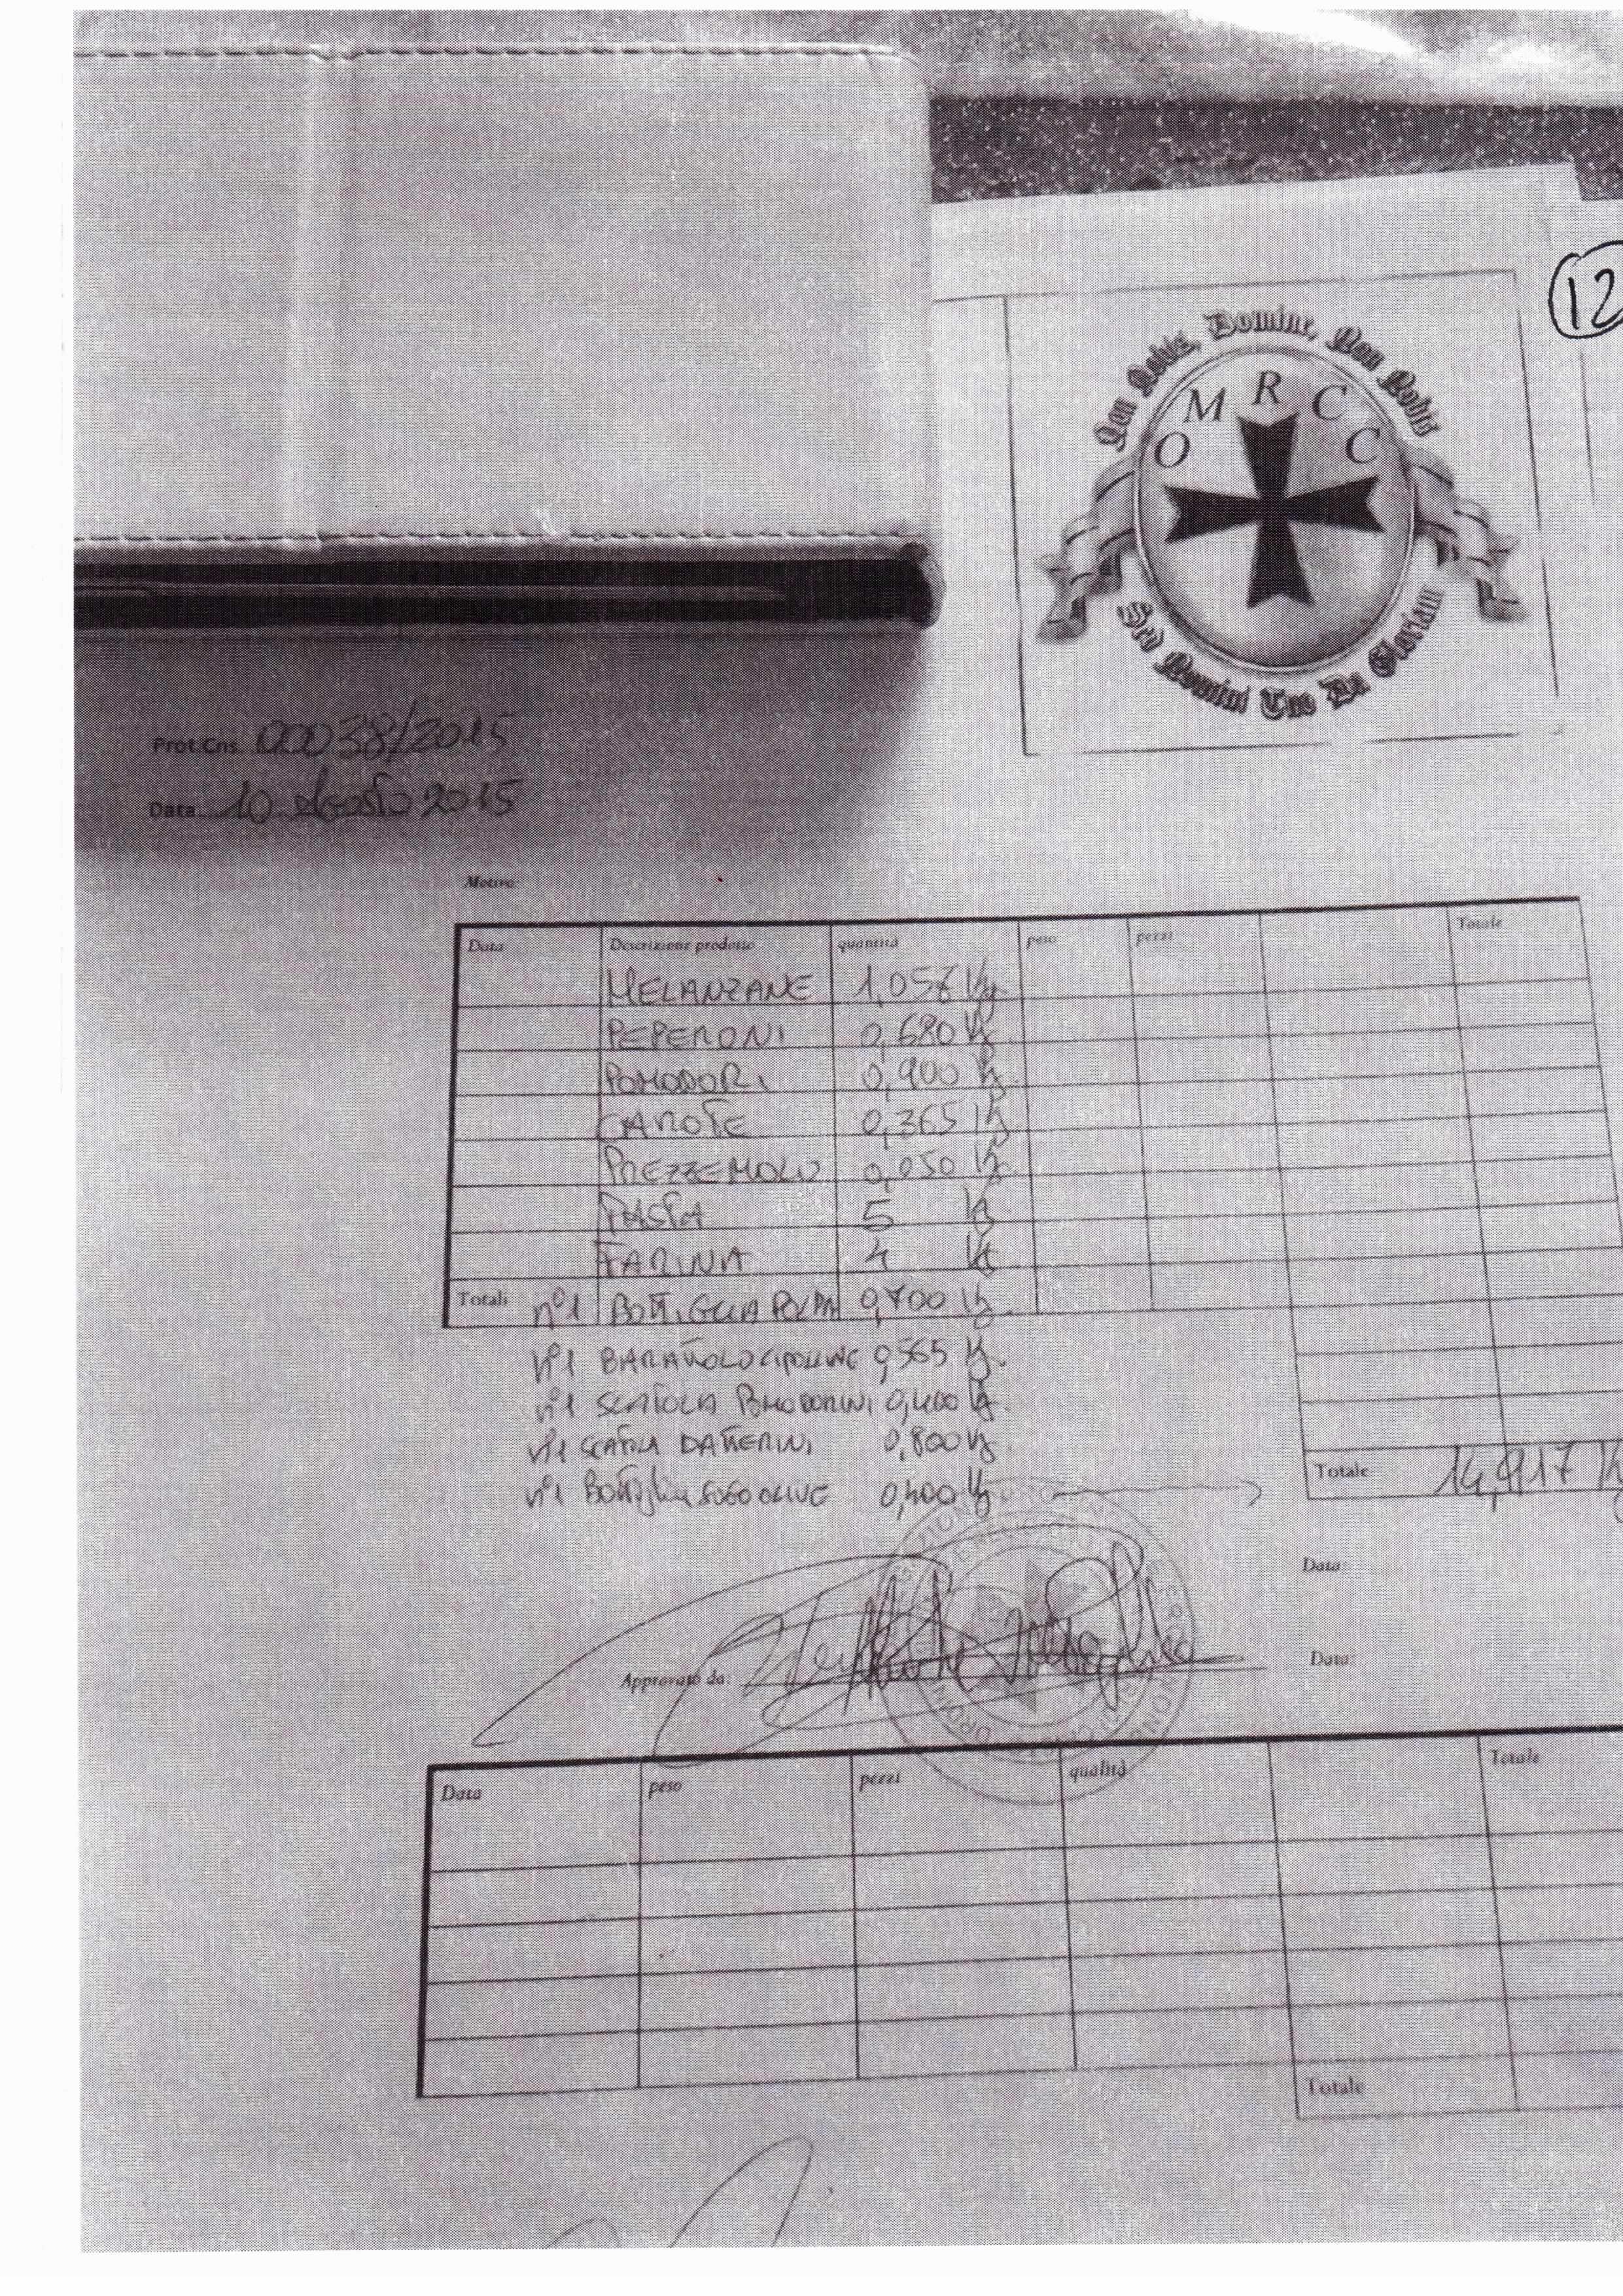 12
Non Nobis, Domine, Non Nobis
O M R C C
Sed Nomini Tuo Da Gloriam
Prot.Cns. 00038/2015
Data 10 Agosto 2015
Motivo:
Data Descrizione prodotto quantità peso pezzi Totale
MELANZANE 1,057 Kg
PEPERONI 0,680 Kg
POMODORI 0,900 Kg
CAROTE 0,365 Kg
PREZZEMOLO 0,050 Kg
PASTA 5 Kg
FARINA 4 Kg
Totali n°1 BOTTIGLIA POLPA 0,700 Kg
n°1 BARATTOLO CIPOLLINE 0,565 Kg
n°1 SCATOLA POMODORINI 0,400 Kg
n°1 SCATOLA DATTERINI 0,800 Kg
n°1 Bottiglia SUGO OLIVE 0,400 Kg
Totale 14,917 Kg
Data:
Approvato da:
Data:
Data peso pezzi qualità Totale
Totale